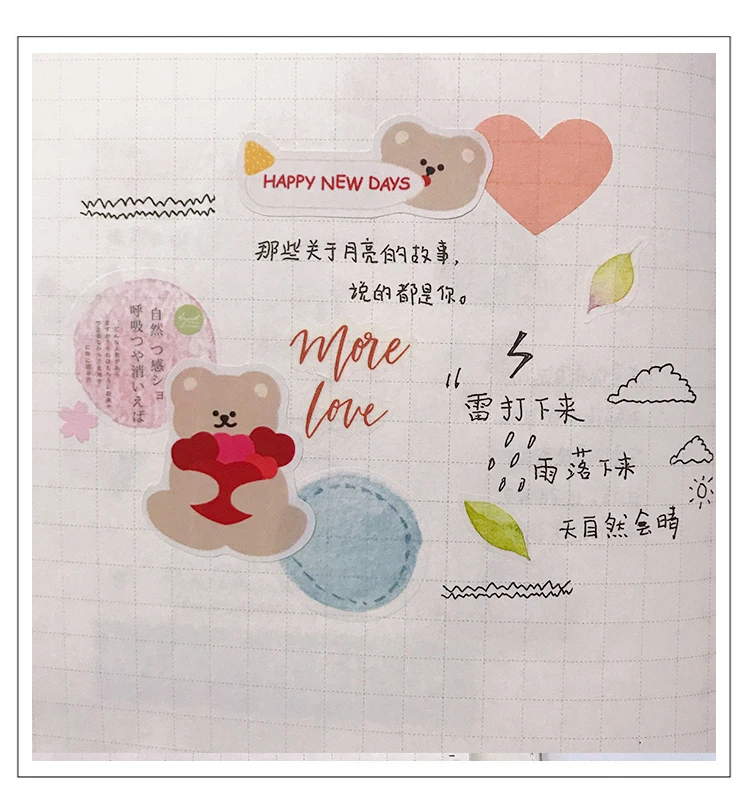 HAPPY NEW DAYS
那些关于月亮的故事,
说的都是你。
自然 つ感ショ
呼吸つや消いえば
more
love
雷打下来
雨落下来
天自然会晴